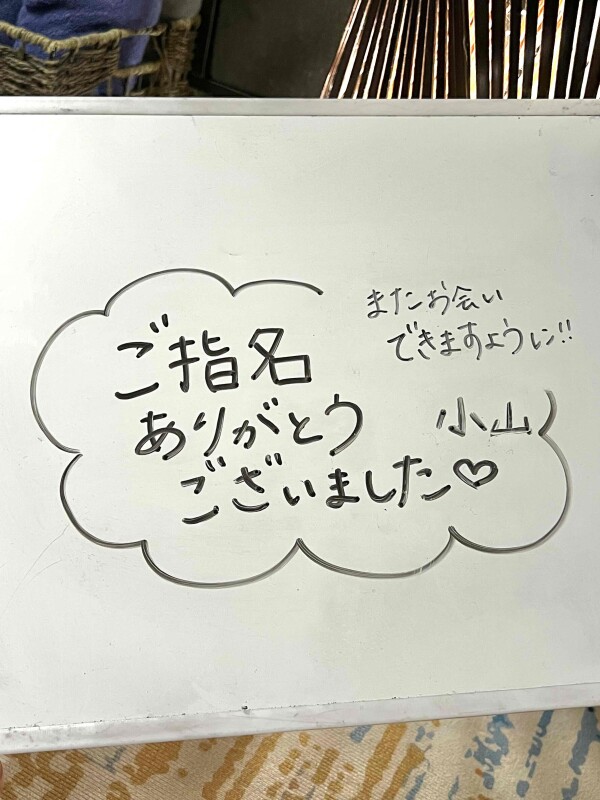 ご指名
ありがとう
ございました♡
またお会い
できますように!!
小山